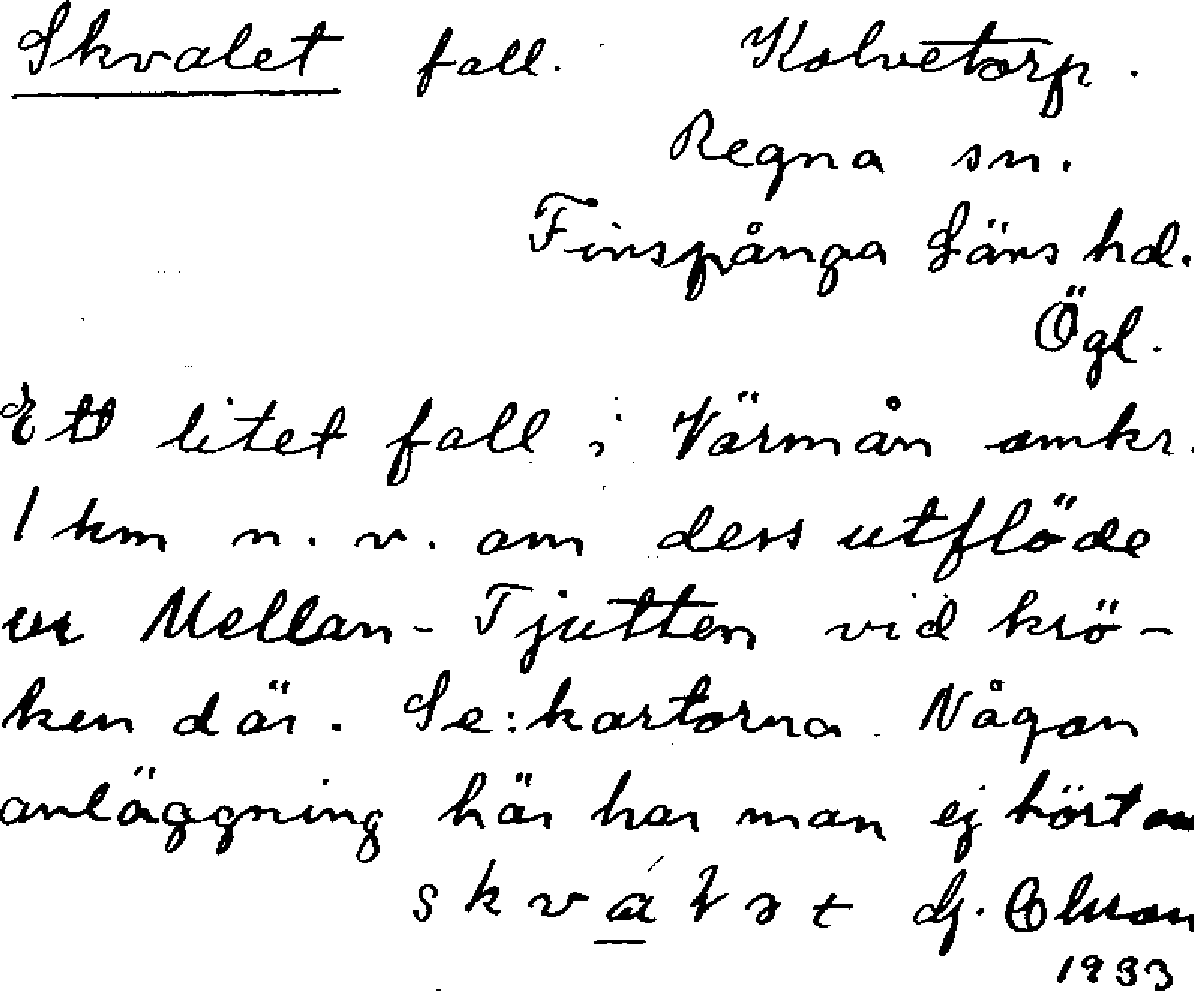 Skvalet fall. Kolvetorp.
Regna sn.
Finspånga Läns hd.
Ögl.
Ett litet fall i Värmån omkr.
1 km n. v. om dess utflöde
ur Mellan-Tjutten vid krö-
ken där. Se: kartorna. Någon
anläggning här har man ej hört om
1933